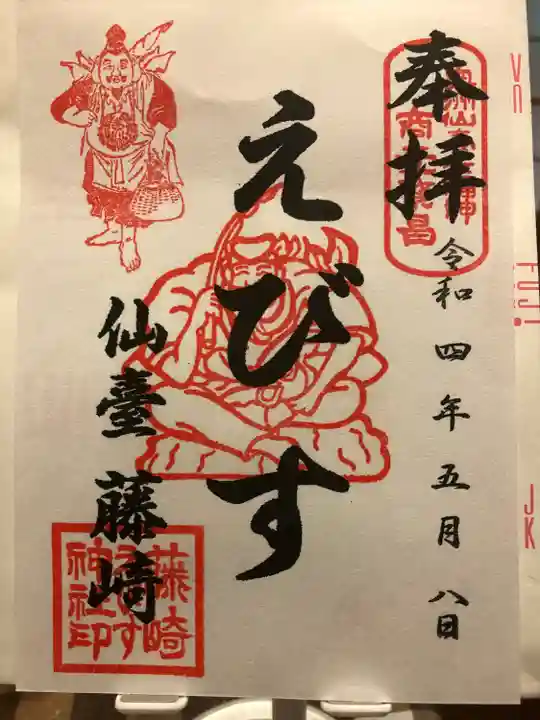 奉拝
令和四年五月八日
えびす
仙臺 藤崎
藤崎
えびす
神社印
FUJI
JK